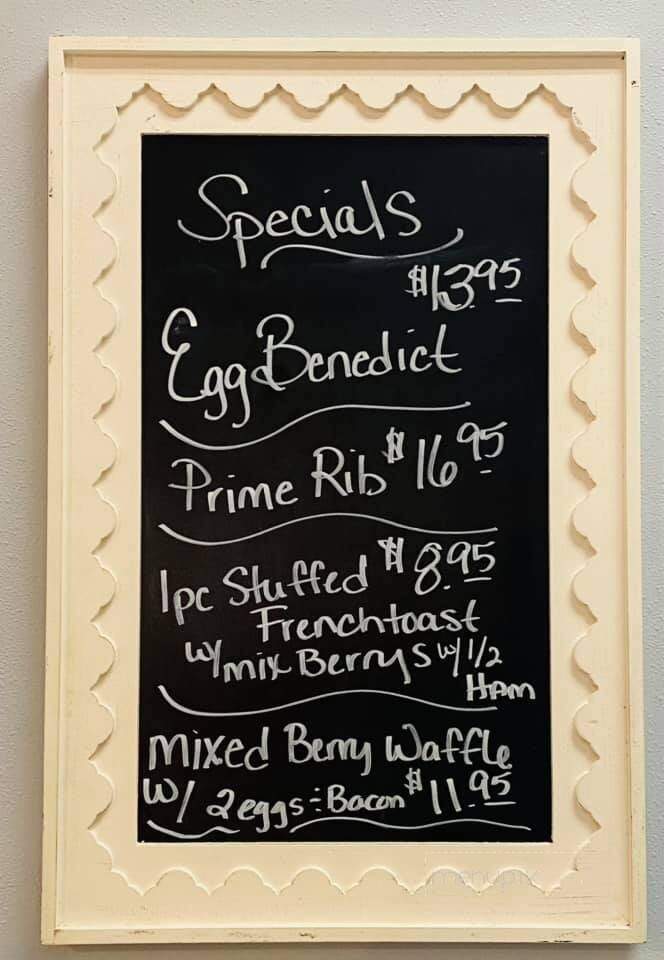 Specials
$13.95
Egg Benedict
Prime Rib $16.95
1pc Stuffed $8.95
Frenchtoast
w/ mix Berrys w/ 1/2
Ham
mixed Berry Waffle
w/ 2eggs ÷ Bacon $11.95
menupix